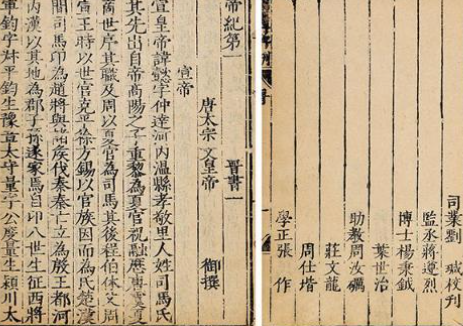 帝紀第一　晉書一
唐太宗文皇帝　御撰
宣帝
宣皇帝諱懿字仲達河內溫縣孝敬里人姓司馬氏
其先出自帝高陽之子重黎為夏官祝融歷唐虞夏
商世序其職及周以夏官為司馬其後程伯休父周
宣王時以世官克平徐方錫以官族因而為氏楚漢
間司馬卬為趙將與諸侯伐秦秦亡立為殷王都河
內漢以其地為郡子孫遂家焉自卬八世生征西將
軍鈞字叔平鈞生豫章太守量字公度量生潁川太
司業劉 校刊
監丞蔣遵烈
博士楊秉鉞
葉世治
助教周汝礪
莊文龍
周仕堦
學正張 作